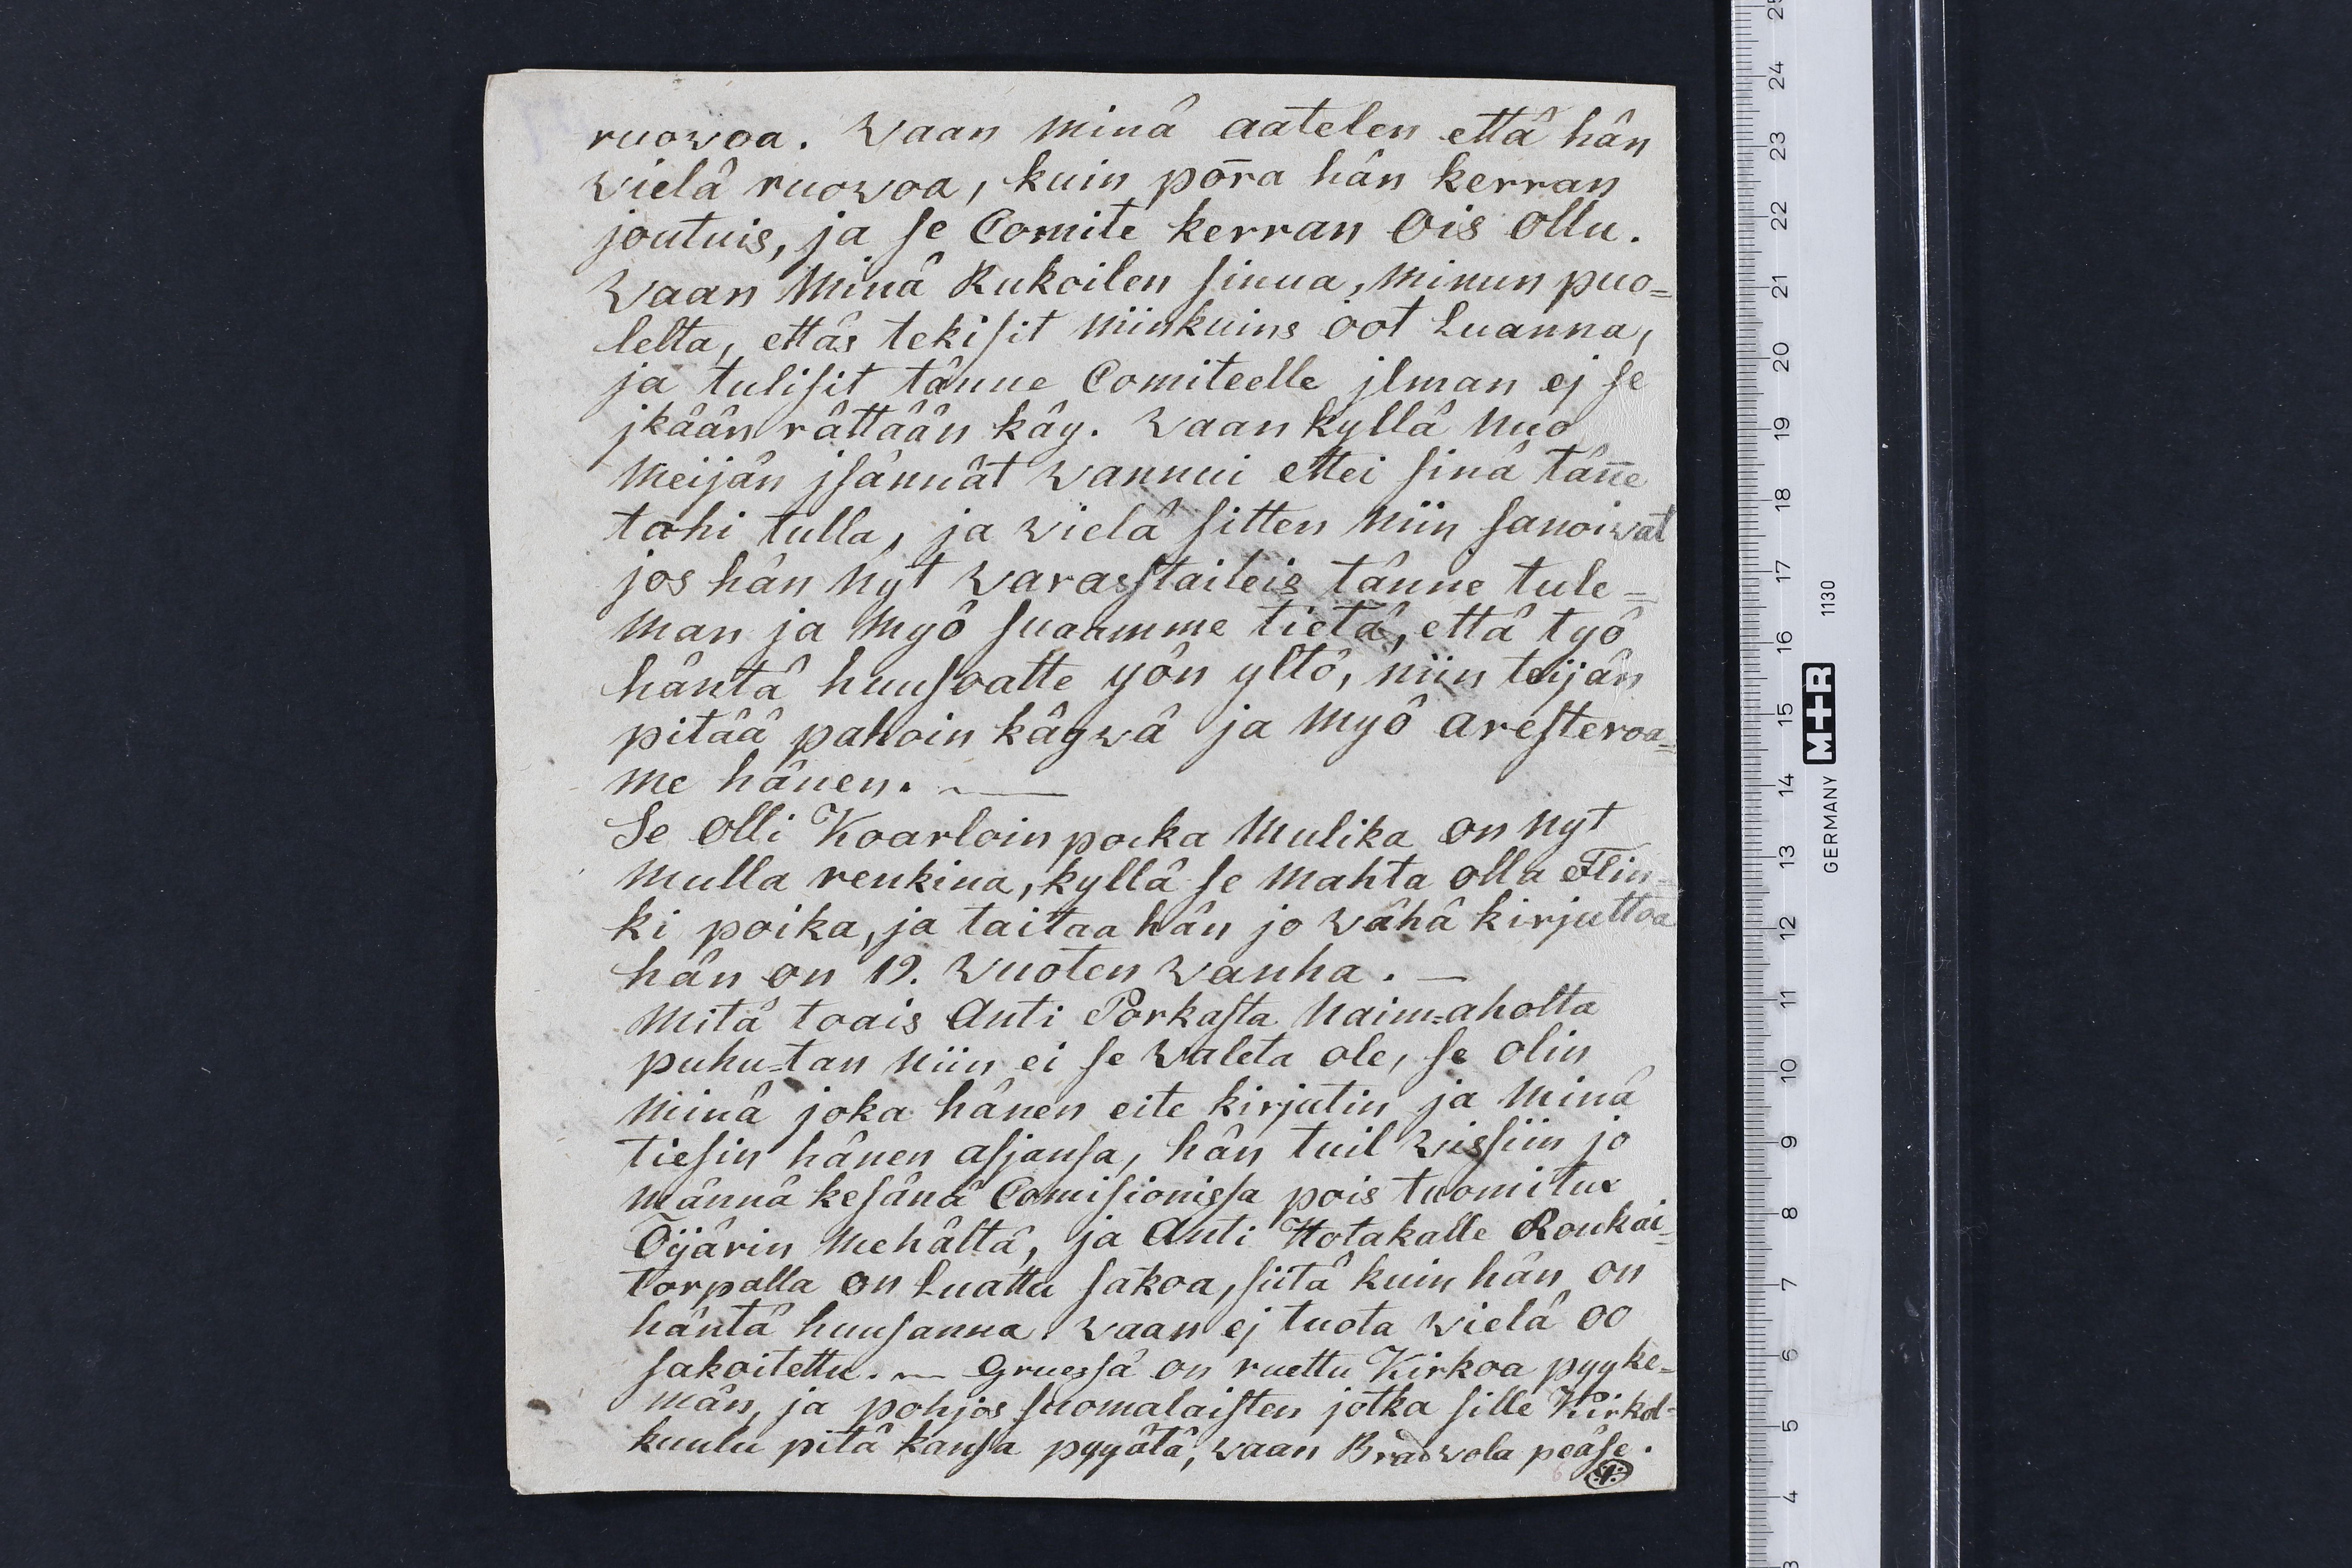 ruowoa. Waan minâ aatelen ettâ hân
wielâ ruowoa, kuin pōra hân kerran
joutuis, ja se Comite kerran Ois ollu.
Waan Minâ Rukoilen sinua, minun puo=
lelta, ettâs tekisit niinkuins oot Luanna,
ja tulisit tânne Comiteelle jlman ej se
jkâân râttâân kây. Waan kyllâ nuo
meijân jsânnât wannui ettei sinâ tân̄e
tohi tulla, ja wielâ sitten niin sanoiwat
jos hân nyt warasstaileis tânne tule=
man ja myô suamme tietâ, ettâ tyô
hântâ huusoatte yôn yltô, niin teijân
pitââ pahoin kâywâ ja myô aresteroa=
me hânen. ~
Se olli Koarloin poika Mulika on nyt
mulla renkina, kyllâ se mahta olla Flin=
ki poika, ja taitaa hân jo wâhâ kirjuttoa
hân on 19. wuoten wanha. —
Mitâ toais Anti Porkasta Naim=aholta
puhu=tan niin ei se waleta ole, se olin
minâ joka hânen eite kirjutin ja minâ
tiesin hânen asjansa, hân tuil wissiin jo
mânnâ kesânâ Comisionissa pois tuomitux
Ōijârin mehâltâ, ja Anti Hotakalle Roukai=
torpalla on Luattu sakoa, siitâ kuin hân on
hântâ huusanna. waan ej tuota wielâ oo
sakoitettu. ~ Gruessâ on ruettu Kirkoa pyyke=
mân, ja pohjos suomalaisten jotka sille Kirkol=
kuulu pitâ kansa pyyâtâ, waan Bradwola peâse.
6
GERMANY M+R 1130
25
24
23
22
21
20
19
18
17
16
15
14
13
12
11
10
9
8
7
6
5
4
3